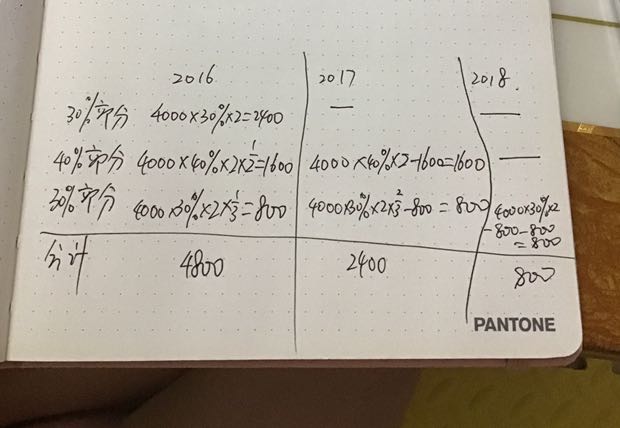 2016 2017 2018.
30%部分 4000×30%×2=2400 — —
40%部分 4000×40%×2×1/2=1600 4000×40%×2-1600=1600 —
30%部分 4000×30%×2×1/3=800 4000×30%×2×2/3-800=800 4000×30%×2
-800-800
=800
合计 4800 2400 800
PANTONE